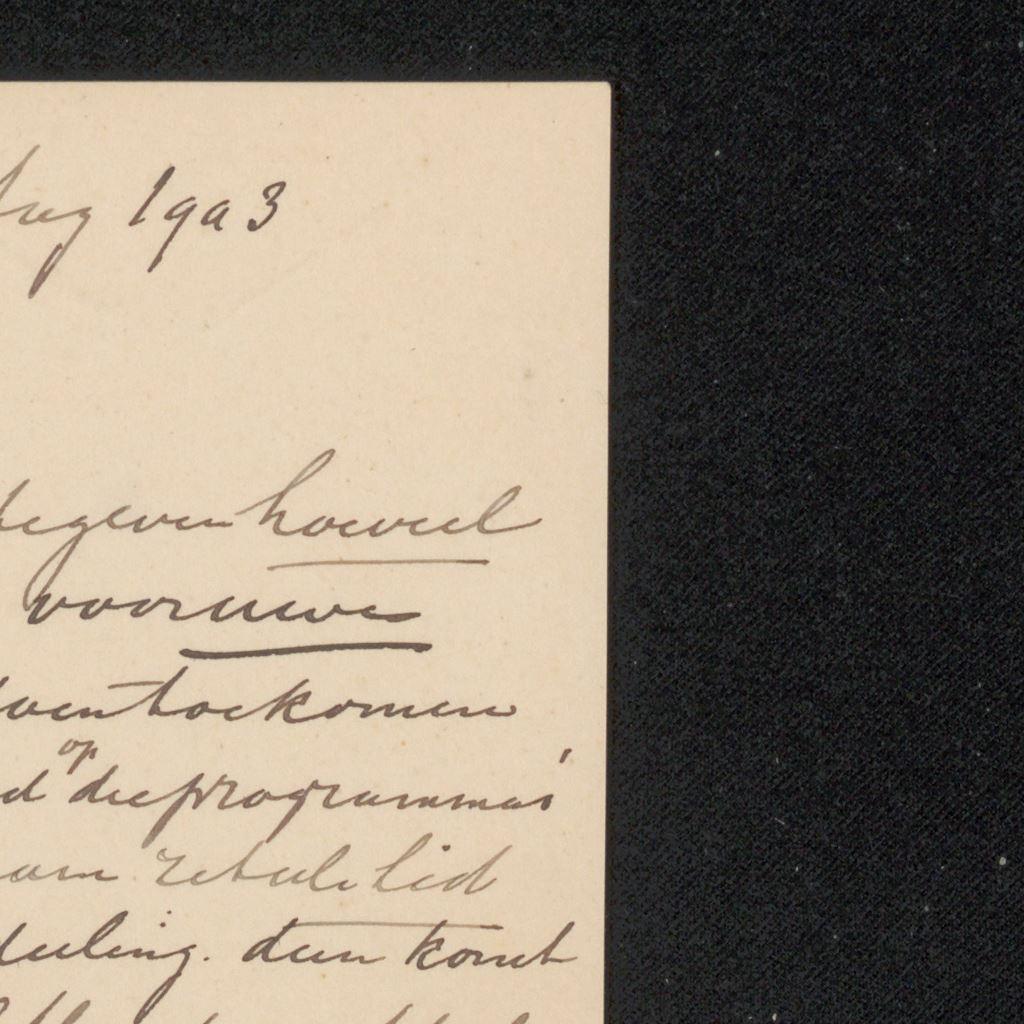 Aug 1903
tegeven hoeveel
vooruwe
toekomen
op
die programmas'
lid
deeling. dan komt